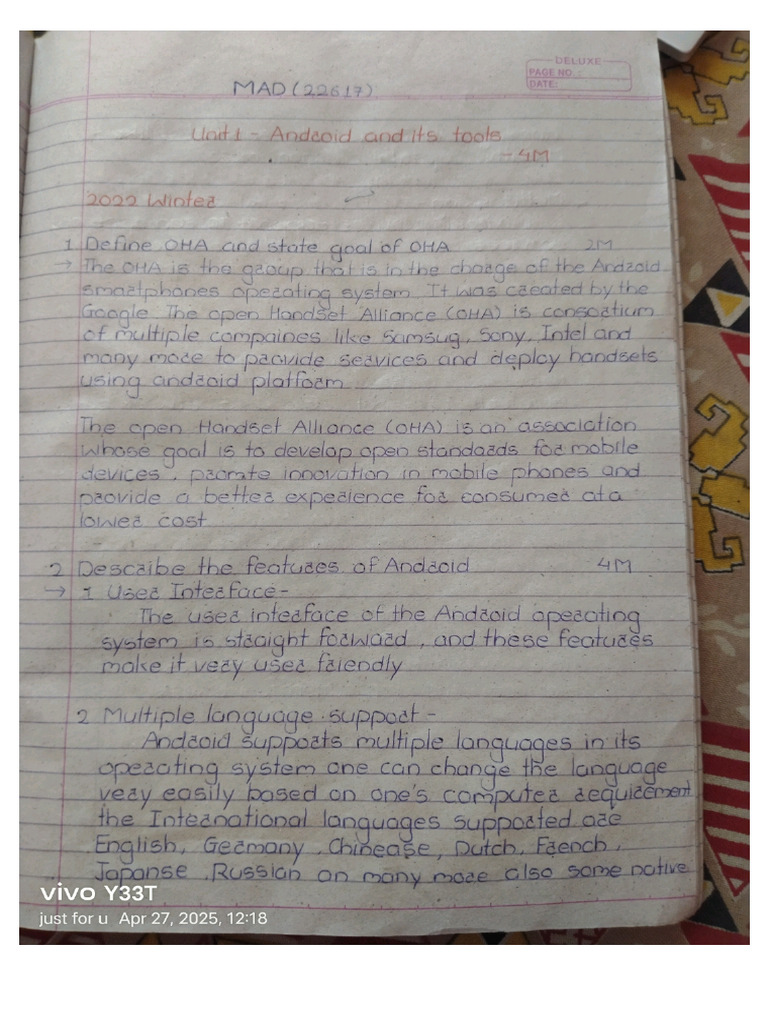 DELUXE
PAGE NO. :
DATE:
MAD (22617)
Unit 1 - Android and its tools
- 4M
2022 Winter
1 Define OHA and state goal of OHA 2M
→ The OHA is the group that is in the charge of the Android
smartphones operating system. It was created by the
Google. The open Handset Alliance (OHA) is consortium
of multiple compaines like Samsug, Sony, Intel and
many more to provide services and deploy handsets
using android platform.
The open Handset Alliance (OHA) is an association
whose goal is to develop open standards for mobile
devices, promte innovation in mobile phones and
provide a better experience for consumer at a
lower cost
2 Describe the features of Android 4M
→ 1 User Interface -
The user interface of the Android operating
system is straight forward, and these features
make it very user friendly
2 Multiple language support -
Android supports multiple languages in its
operating system one can change the language
very easily based on one's computer requirement
the International languages supported are
English, Germany, Chinease, Dutch, French,
Japanse, Russian an many more also some native
vivo Y33T
just for u Apr 27, 2025, 12:18